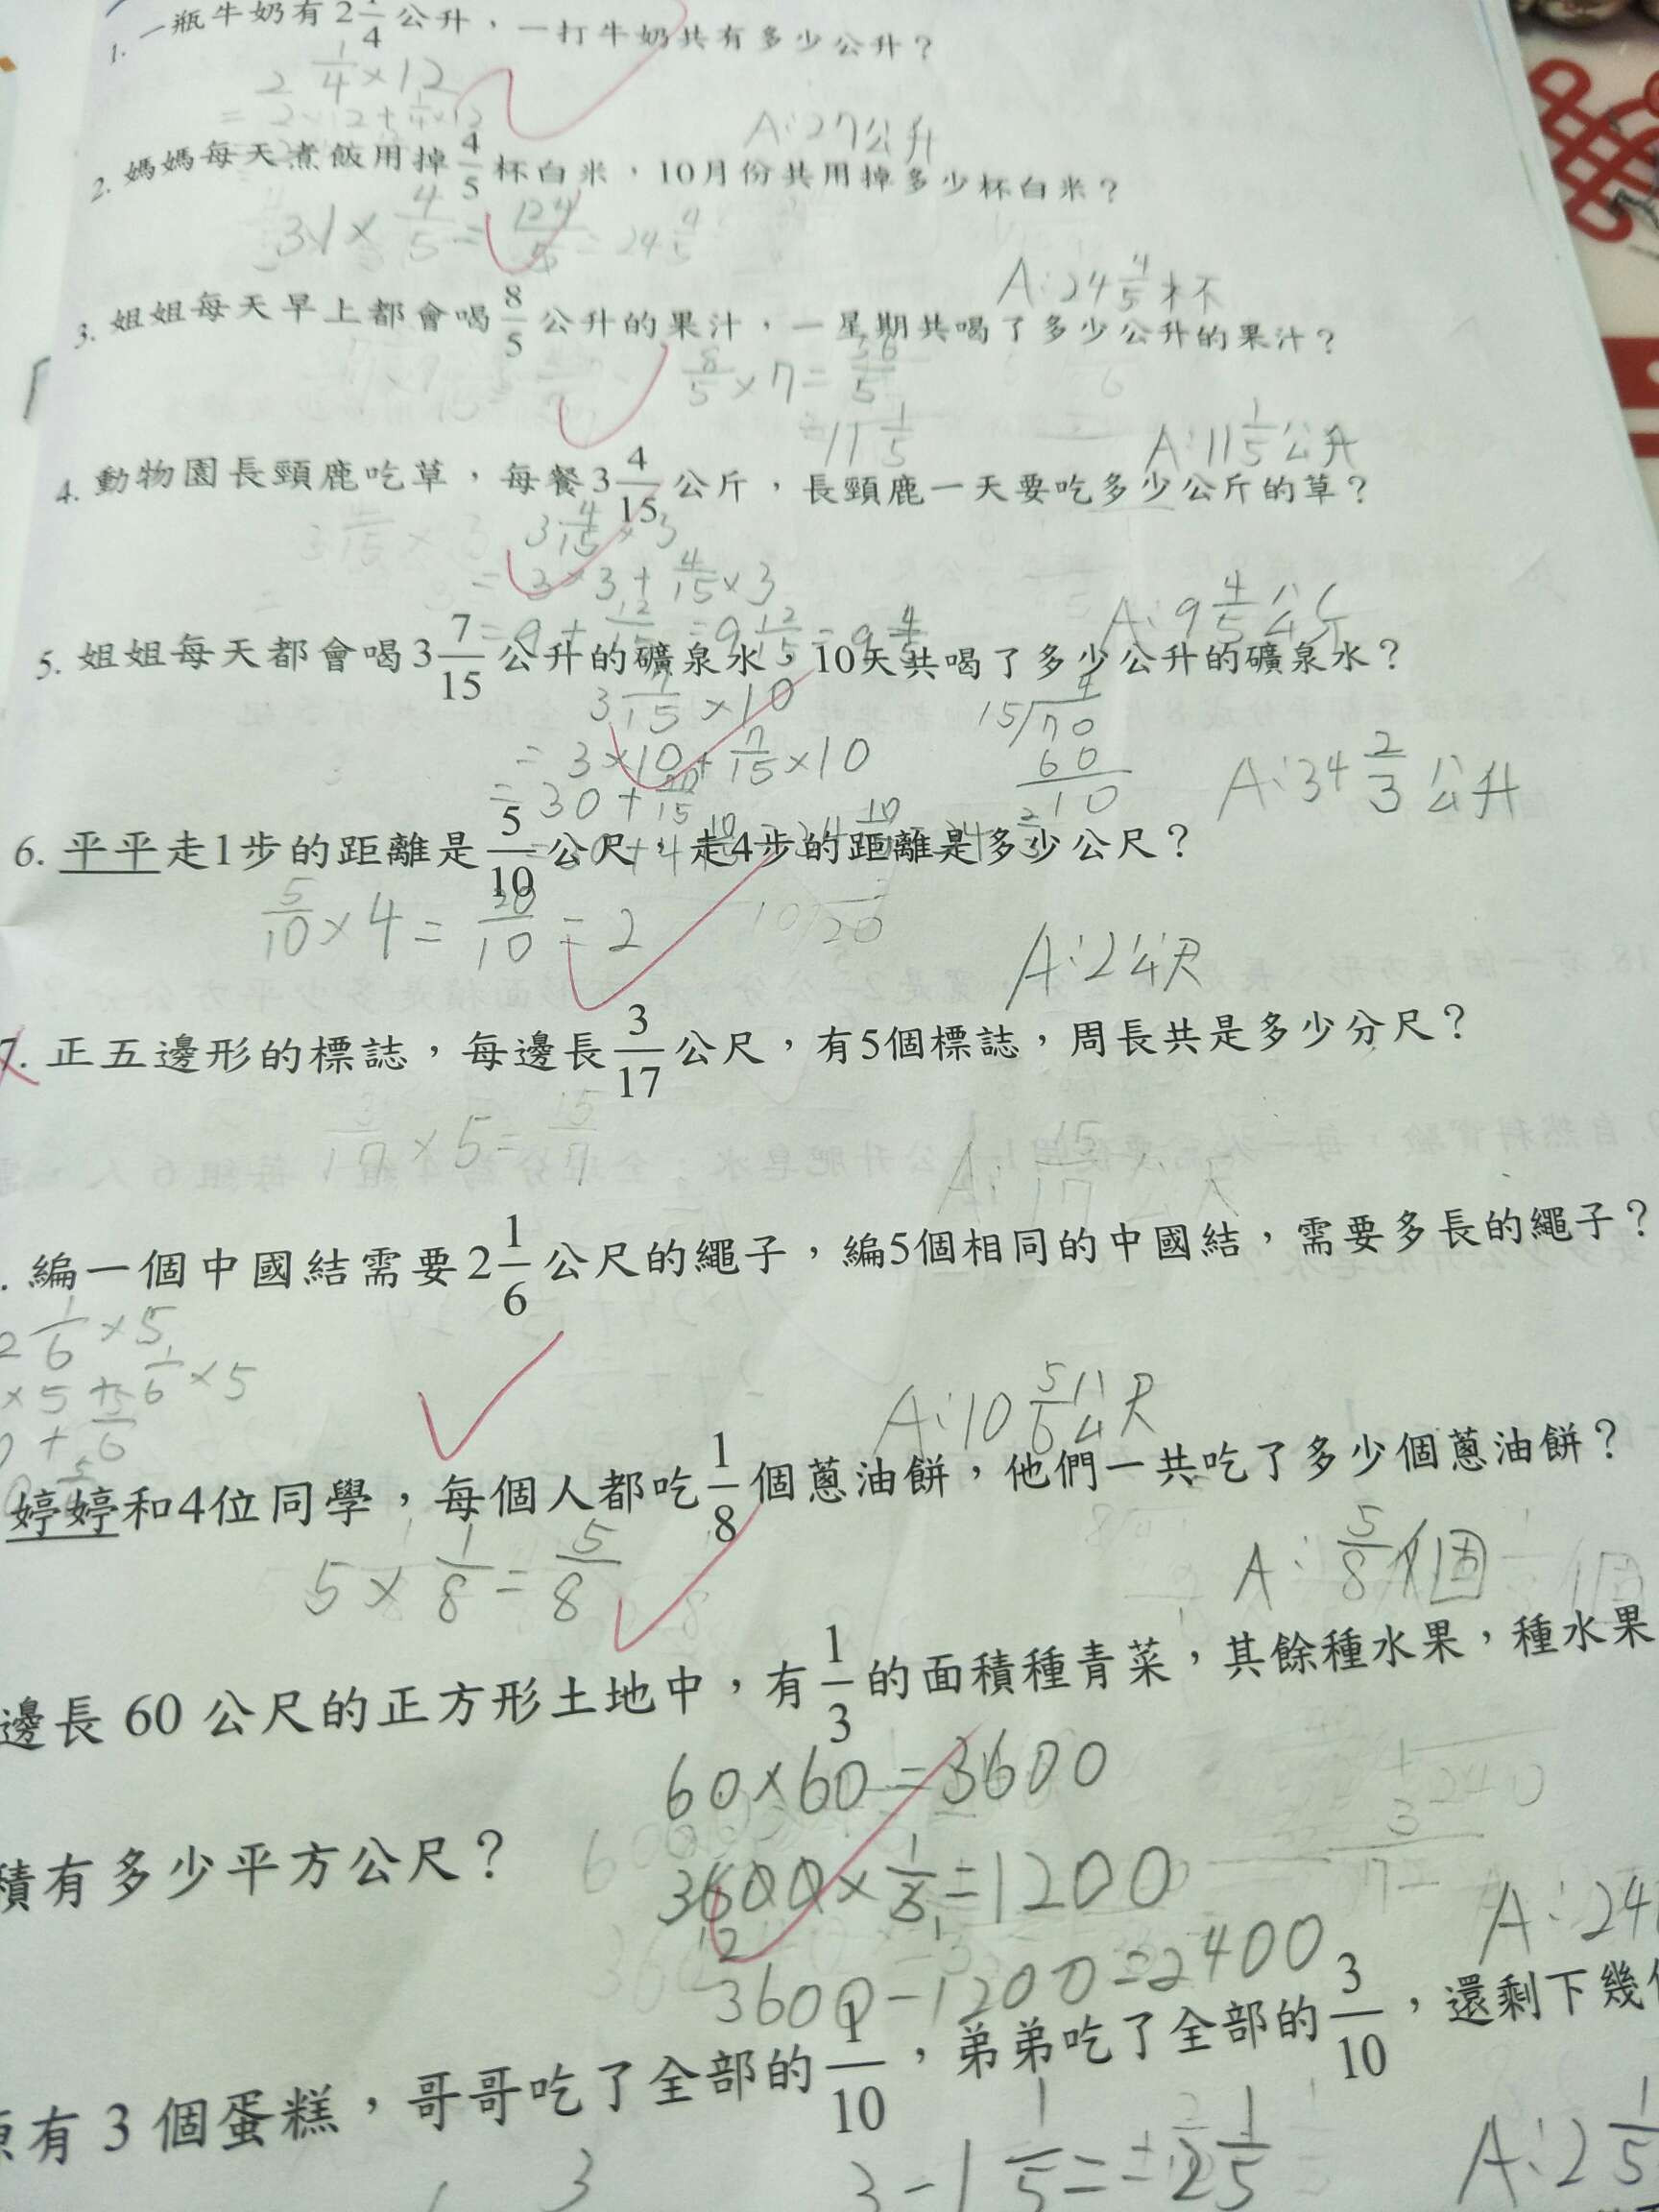 1. 一瓶牛奶有2 1/4公升，一打牛奶共有多少公升？
2 1/4×12
= 2×12+1/4×12
A:27公升
2. 媽媽每天煮飯用掉4/5杯白米，10月份共用掉多少杯白米？
31×4/5=124/5=24 4/5
A:24 4/5杯
3. 姐姐每天早上都會喝8/5公升的果汁，一星期共喝了多少公升的果汁？
8/5×7=56/5
=11 1/5
A:11 1/5公升
4. 動物園長頸鹿吃草，每餐3 4/15公斤，長頸鹿一天要吃多少公斤的草？
3 4/15×3
= 3×3+4/15×3
=9+12/15=9 12/15=9 4/5
A:9 4/5公斤
5. 姐姐每天都會喝3 7/15公升的礦泉水，10天共喝了多少公升的礦泉水？
3 7/15×10
= 3×10+7/15×10
= 30+70/15
4
15 70
60
10
A:34 2/3公升
6. 平平走1步的距離是5/10公尺，走4步的距離是多少公尺？
5/10×4=20/10=2
A:2公尺
7. 正五邊形的標誌，每邊長3/17公尺，有5個標誌，周長共是多少分尺？
3/17×5=15/17
A:15/17公尺
. 編一個中國結需要2 1/6公尺的繩子，編5個相同的中國結，需要多長的繩子？
2 1/6×5
×5+1/6×5
+5/6
A:10 5/6公尺
婷婷和4位同學，每個人都吃1/8個蔥油餅，他們一共吃了多少個蔥油餅？
5×1/8=5/8
A:5/8個
邊長 60 公尺的正方形土地中，有1/3的面積種青菜，其餘種水果，種水果
60×60=3600
積有多少平方公尺？
3600×1/3=1200
3600-1200=2400
A:24
原有 3 個蛋糕，哥哥吃了全部的1/10，弟弟吃了全部的3/10，還剩下幾
A:2 1/5